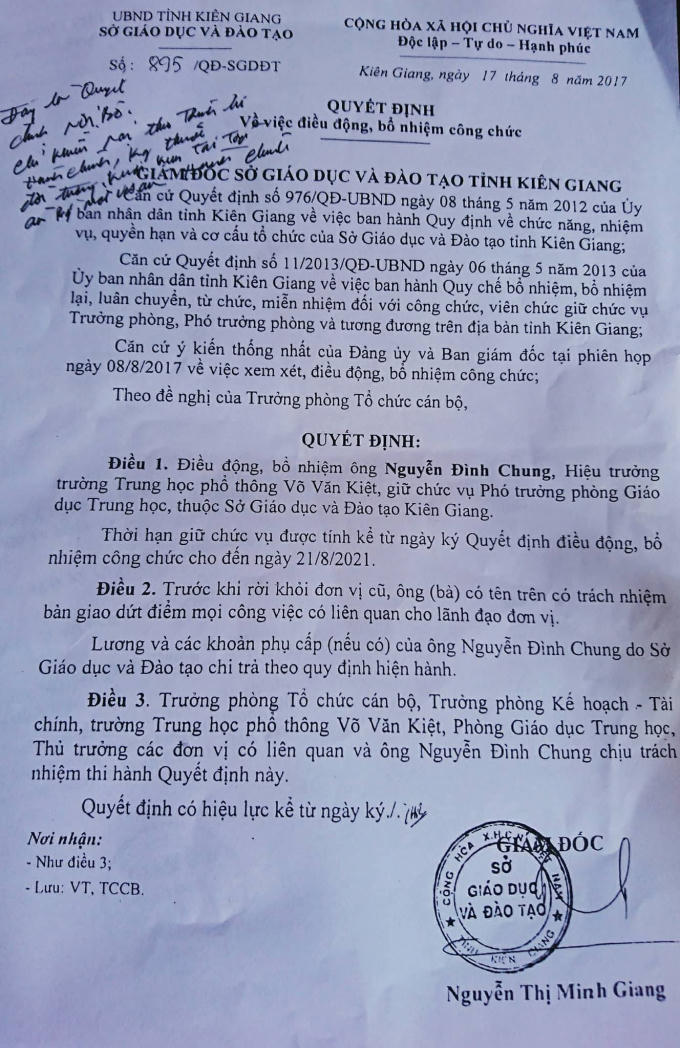 UBND TỈNH KIÊN GIANG
SỞ GIÁO DỤC VÀ ĐÀO TẠO
Số: 895 /QĐ-SGDĐT
CỘNG HÒA XÃ HỘI CHỦ NGHĨA VIỆT NAM
Độc lập – Tự do – Hạnh phúc
Kiên Giang, ngày 17 tháng 8 năm 2017
Đây là Quyết
định Nội Bộ.
QUYẾT ĐỊNH
Về việc điều động, bổ nhiệm công chức
GIÁM ĐỐC SỞ GIÁO DỤC VÀ ĐÀO TẠO TỈNH KIÊN GIANG
Căn cứ Quyết định số 976/QĐ-UBND ngày 08 tháng 5 năm 2012 của Ủy
ban nhân dân tỉnh Kiên Giang về việc ban hành Quy định về chức năng, nhiệm
vụ, quyền hạn và cơ cấu tổ chức của Sở Giáo dục và Đào tạo tỉnh Kiên Giang;
Căn cứ Quyết định số 11/2013/QĐ-UBND ngày 06 tháng 5 năm 2013 của
Ủy ban nhân dân tỉnh Kiên Giang về việc ban hành Quy chế bổ nhiệm, bổ nhiệm
lại, luân chuyển, từ chức, miễn nhiệm đối với công chức, viên chức giữ chức vụ
Trưởng phòng, Phó trưởng phòng và tương đương trên địa bàn tỉnh Kiên Giang;
Căn cứ ý kiến thống nhất của Đảng ủy và Ban giám đốc tại phiên họp
ngày 08/8/2017 về việc xem xét, điều động, bổ nhiệm công chức;
Theo đề nghị của Trưởng phòng Tổ chức cán bộ,
QUYẾT ĐỊNH:
Điều 1. Điều động, bổ nhiệm ông Nguyễn Đình Chung, Hiệu trưởng
trường Trung học phổ thông Võ Văn Kiệt, giữ chức vụ Phó trưởng phòng Giáo
dục Trung học, thuộc Sở Giáo dục và Đào tạo Kiên Giang.
Thời hạn giữ chức vụ được tính kể từ ngày ký Quyết định điều động, bổ
nhiệm công chức cho đến ngày 21/8/2021.
Điều 2. Trước khi rời khỏi đơn vị cũ, ông (bà) có tên trên có trách nhiệm
bàn giao dứt điểm mọi công việc có liên quan cho lãnh đạo đơn vị.
Lương và các khoản phụ cấp (nếu có) của ông Nguyễn Đình Chung do Sở
Giáo dục và Đào tạo chi trả theo quy định hiện hành.
Điều 3. Trưởng phòng Tổ chức cán bộ, Trưởng phòng Kế hoạch - Tài
chính, trường Trung học phổ thông Võ Văn Kiệt, Phòng Giáo dục Trung học,
Thủ trưởng các đơn vị có liên quan và ông Nguyễn Đình Chung chịu trách
nhiệm thi hành Quyết định này.
Quyết định có hiệu lực kể từ ngày ký./.
Nơi nhận:
- Như điều 3;
- Lưu: VT, TCCB.
GIÁM ĐỐC
CỘNG HÒA X.H.C.N VIỆT NAM
SỞ
GIÁO DỤC
VÀ ĐÀO TẠO
TỈNH KIÊN GIANG
Nguyễn Thị Minh Giang